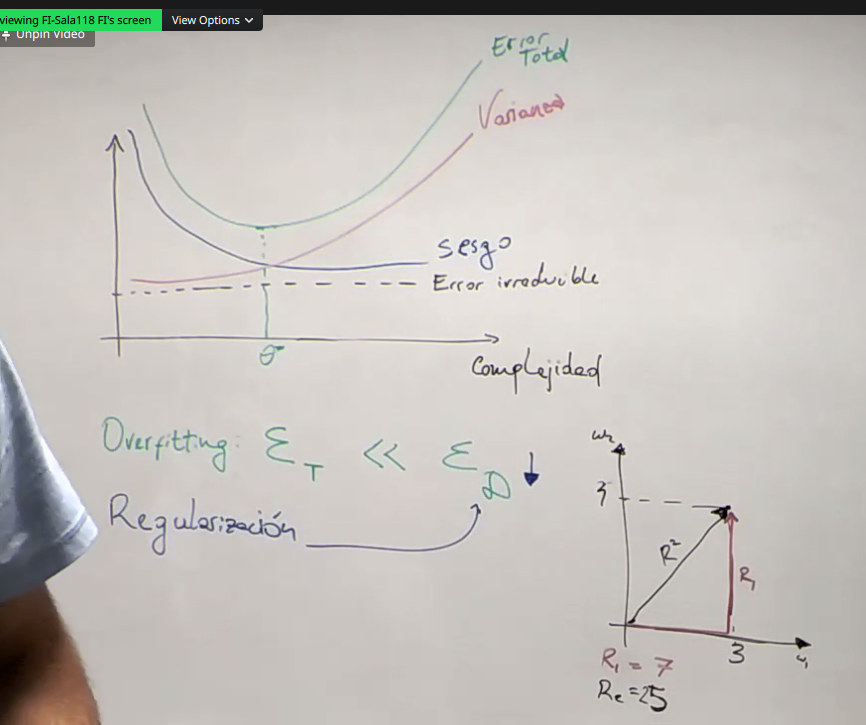 viewing FI-Sala118 FI's screen
View Options
Unpin Video
Error
Total
Varianza
Sesgo
Error irreducible
Complejidad
Overfitting: ε_T << ε_D
Regularización
w₂
R²
R₁
3
w₁
R₁ = 7
R₂ = 25